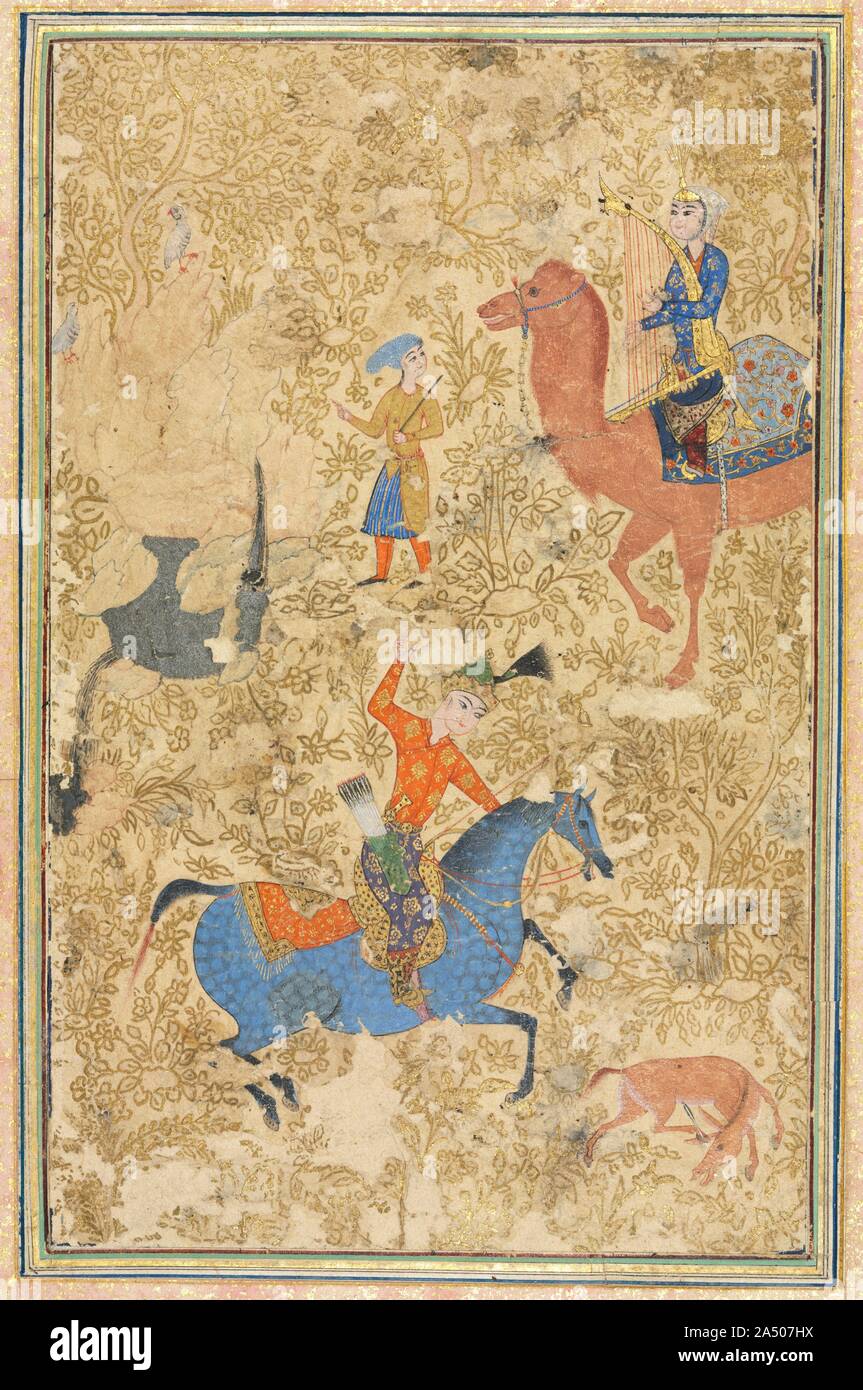 a
a
a
a
alamy
Image ID: 2A507HX
www.alamy.com